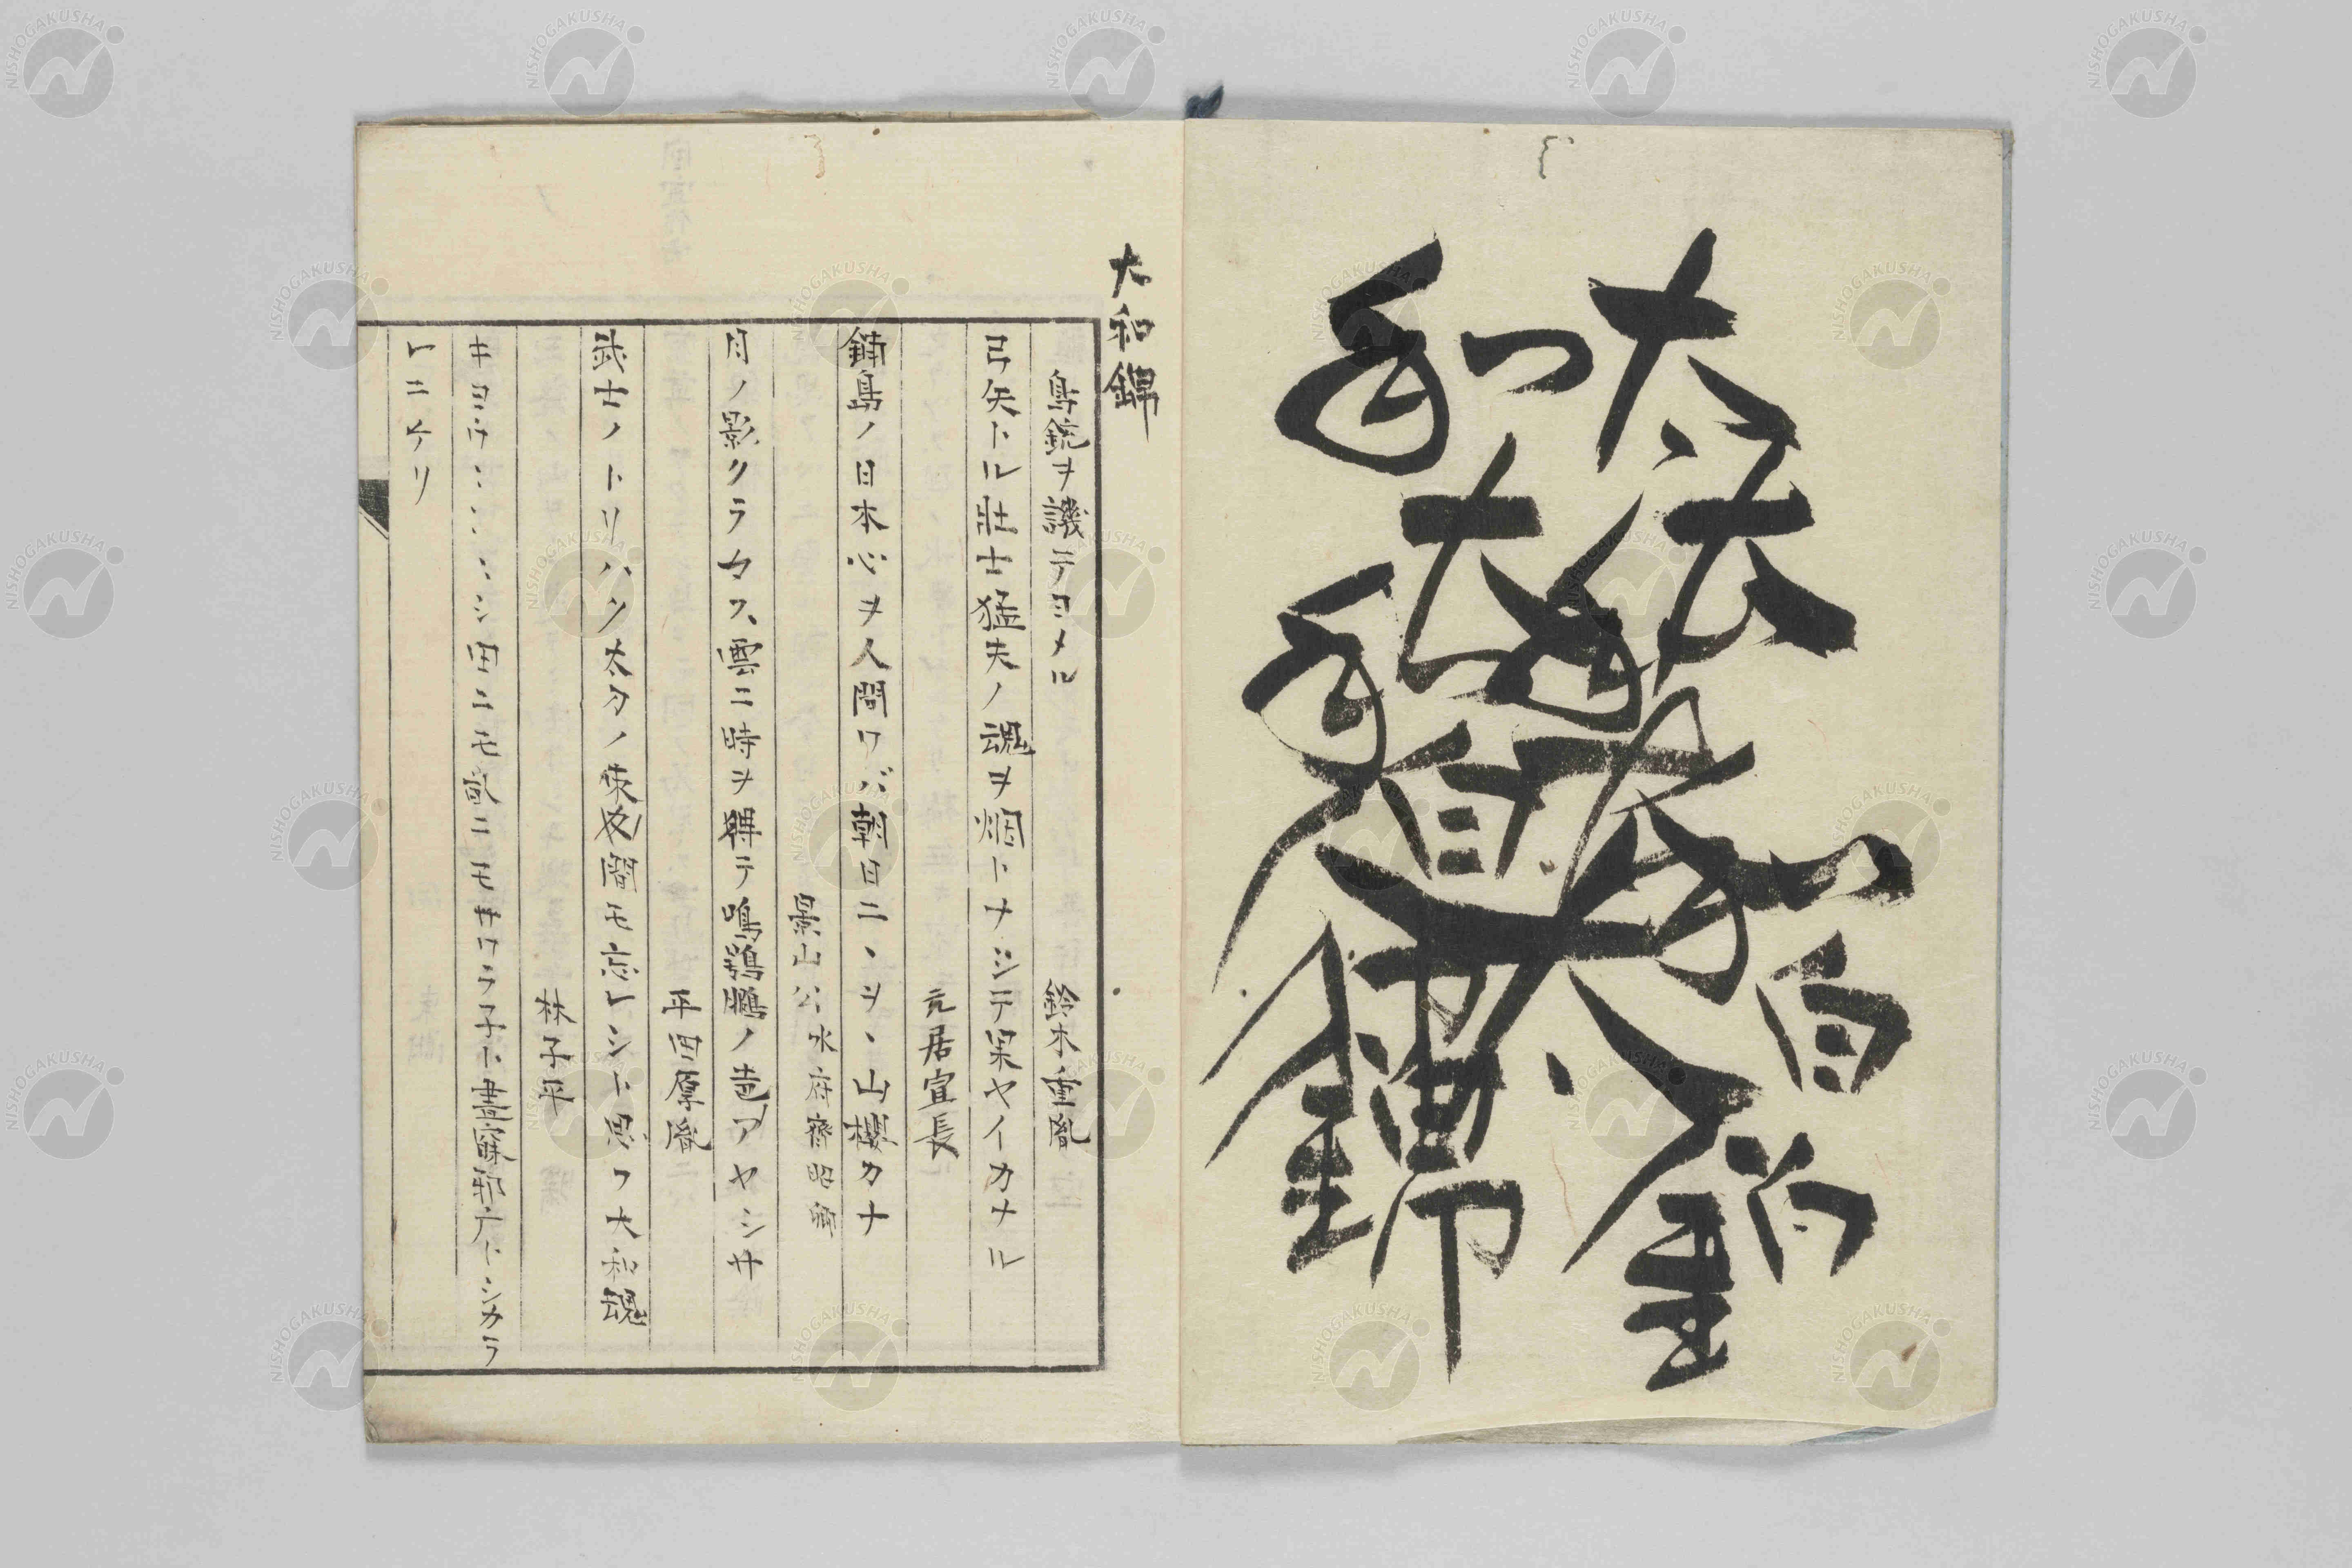 大和錦
大和錦
大和錦
鳥銃ヲ譏テヨメル 鈴木重胤
弓矢トル壯士猛夫ノ魂ヲ烟トナシテ杲ヤイカナル
元居宣長
鋪島ノ日本心ヲ人問ワバ朝日ニヽヲヽ山櫻カナ
景山公 水府齊昭卿
月ノ影クラカス雲ニ時ヲ得テ鳴 ノ アヤシ
平田厚胤
武士ノトリハク太刀ノ束 間モ忘レシト思フ大和魂
林子平
田ニモ ニモ井ワラ子ト晝寐 トシカラ
レニケリ